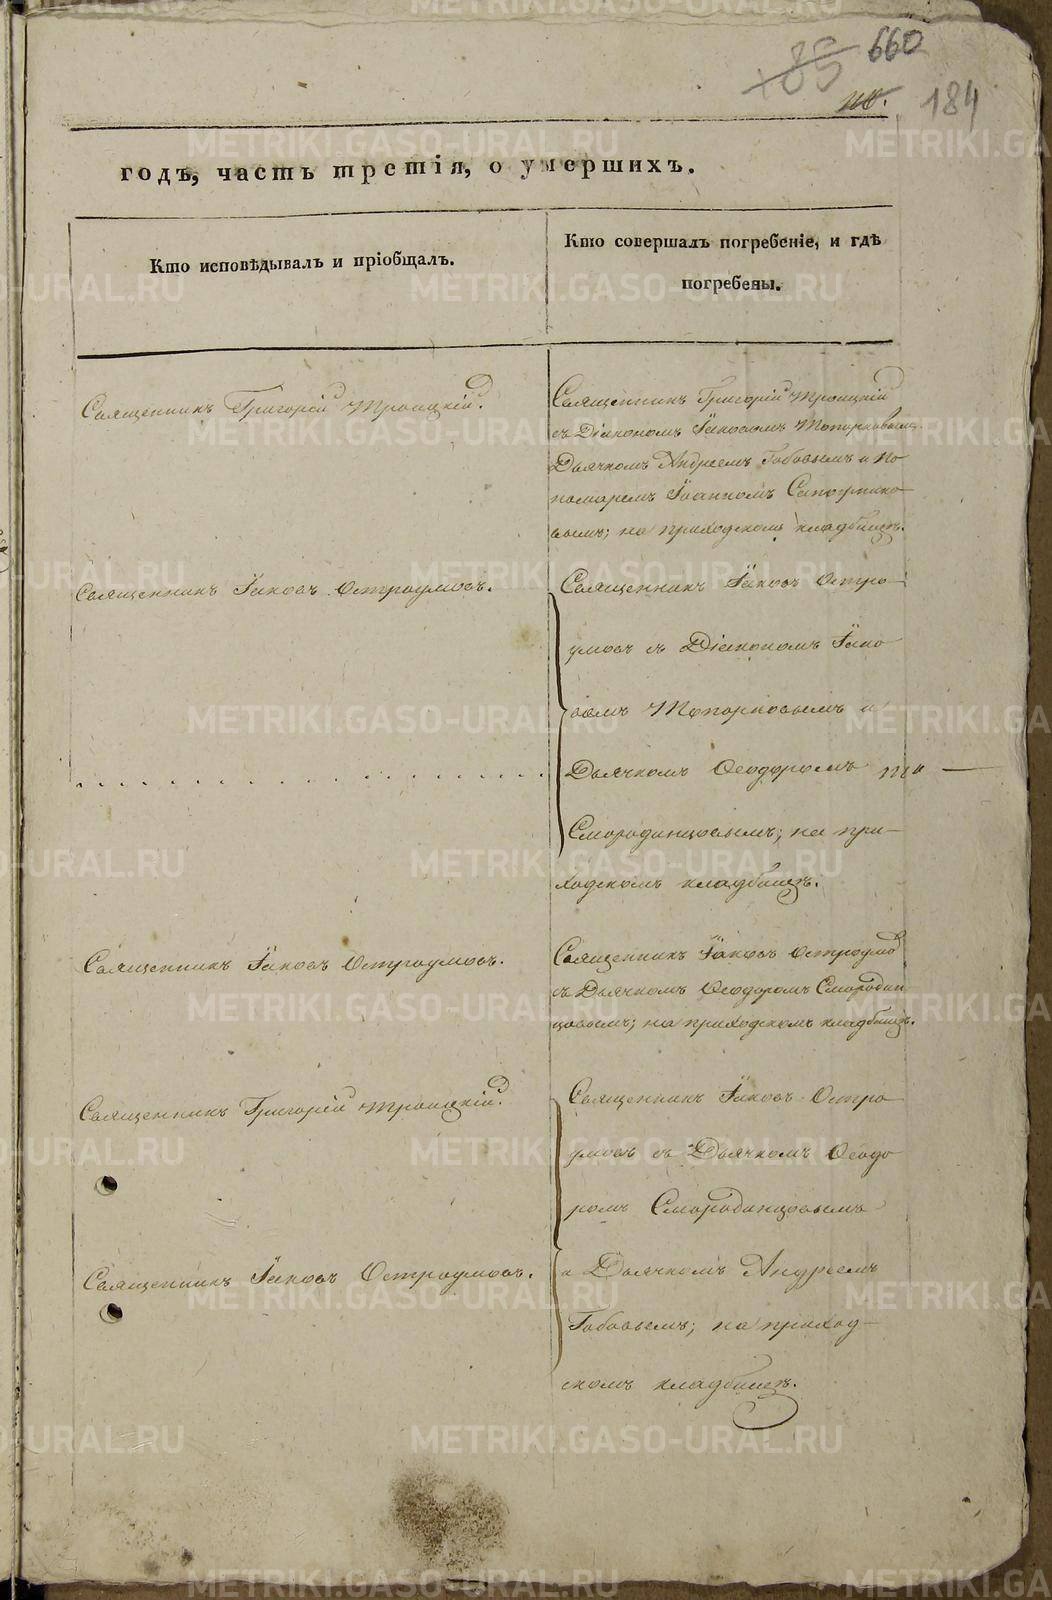 660
184
годъ, часть третія, о умершихъ.
Кто исповѣдывалъ и пріобщалъ.
Кто совершалъ погребеніе, и гдѣ
погребены.
Священникъ Григорій Троицкій.
Священникъ Григорій Троицкій
съ Діакономъ Іаковомъ Топорковымъ
Дьячкомъ Андреемъ Бабовымъ и По
номаремъ Іоанномъ Сапожнико
вымъ; на приходскомъ кладбищѣ.
Священникъ Іаковъ Остроумовъ.
Священникъ Іаковъ Остро
умовъ съ Діакономъ Іако
вомъ Топорковымъ и
Дьячкомъ Ѳеодоромъ
Смородинцовымъ; на при-
ходскомъ кладбищѣ.
Священникъ Іаковъ Остроумовъ.
Священникъ Іаковъ Остроумовъ
съ Дьячкомъ Ѳеодоромъ Смородин
цовымъ; на приходскомъ кладбищѣ.
Священникъ Григорій Троицкій.
Священникъ Іаковъ Остро
умовъ съ Дьячкомъ Ѳеодо
ромъ Смородинцовымъ
Священникъ Іаковъ Остроумовъ.
и Дьячкомъ Андреемъ
Бабовымъ; на приход-
скомъ кладбищѣ.
METRIKI.GASO-URAL.RU